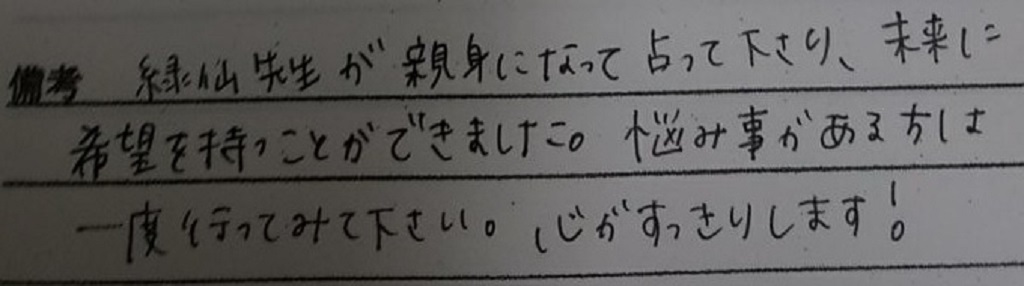 備考 緑仙先生が親身になって占って下さり、未来に
希望を持つことができました。悩み事がある方は
一度行ってみて下さい。心がすっきりします!